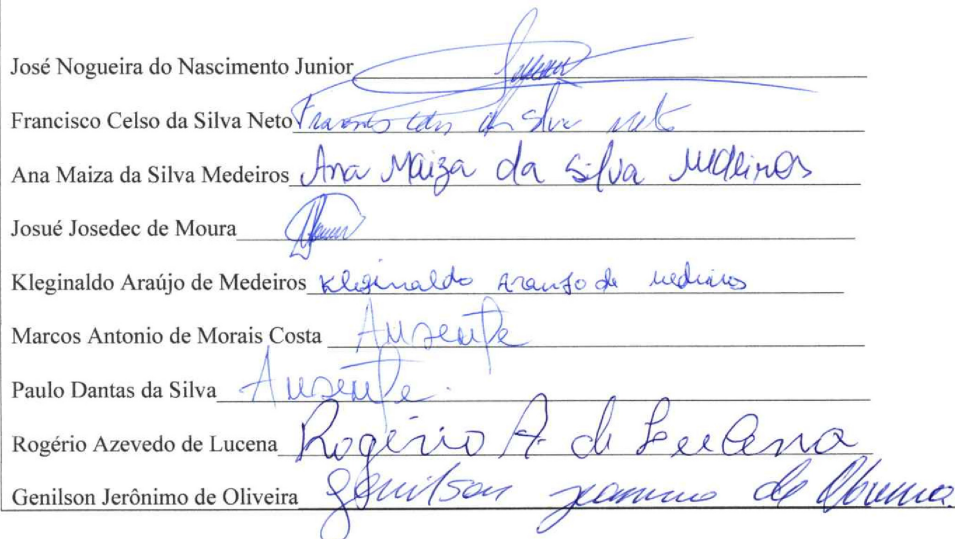 José Nogueira do Nascimento Junior
Francisco Celso da Silva Neto da Silva Neto
Ana Maiza da Silva Medeiros Ana Maiza da Silva Medeiros
Josué Josedec de Moura
Kleginaldo Araújo de Medeiros Kleginaldo Araujo de Medeiros
Marcos Antonio de Morais Costa Ausente
Paulo Dantas da Silva Ausente.
Rogério Azevedo de Lucena Rogério A. de Lucena
Genilson Jerônimo de Oliveira Genilson de